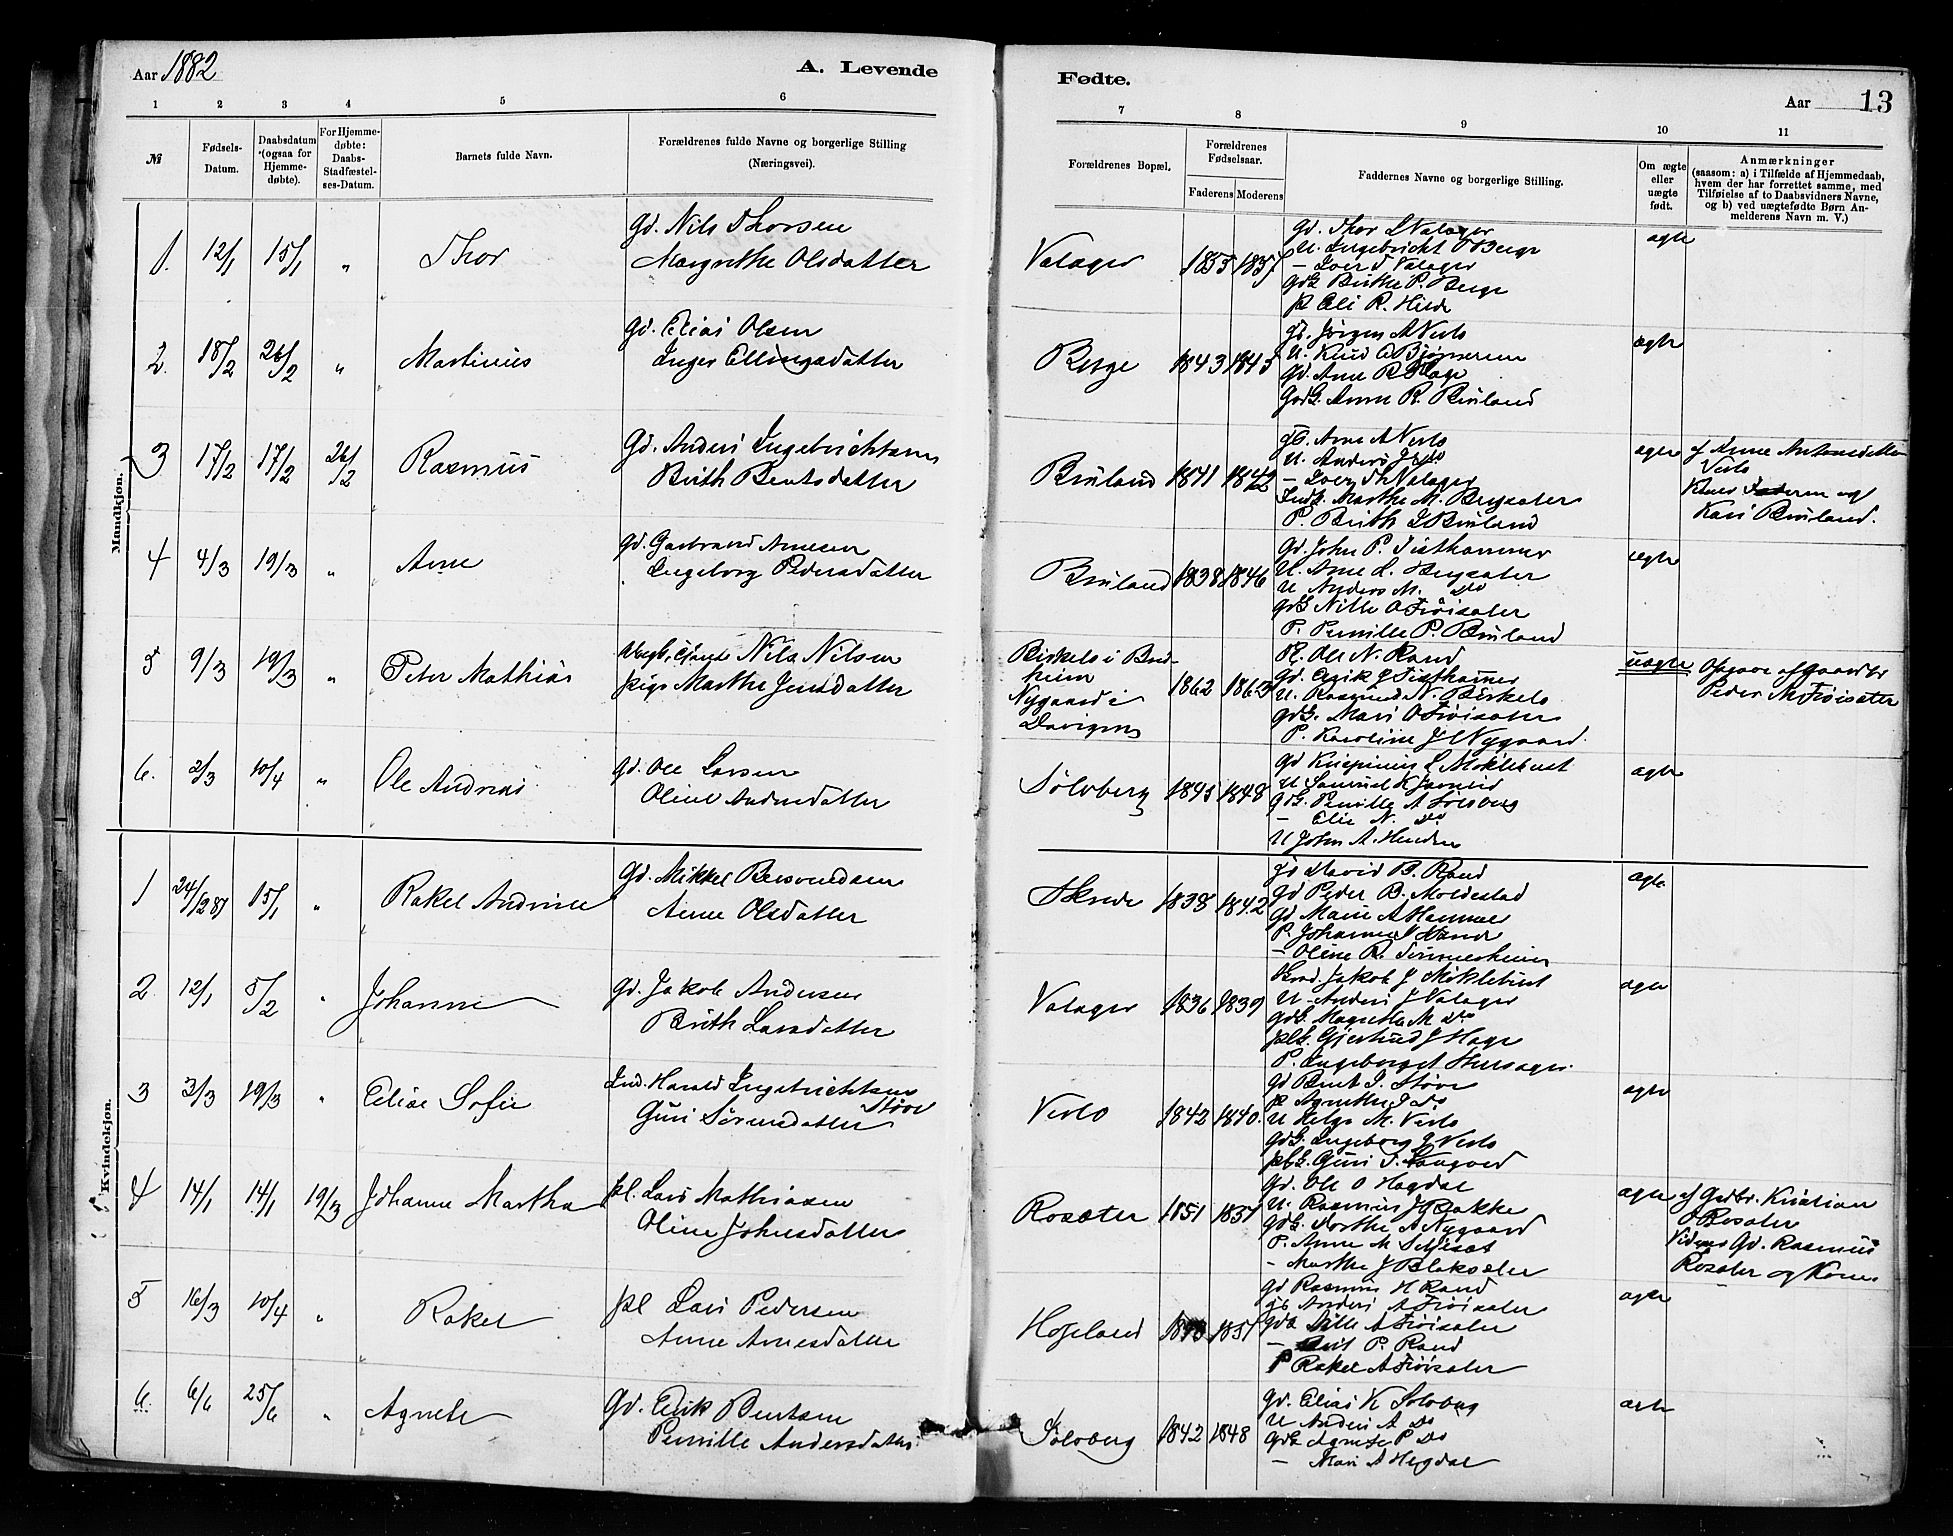 Aar 1882
A. Levende
Fødte.
Aar
13
1 2 3 4 5 6
7 8 9 10 11
№
Fødsels-
Datum.
Daabsdatum
(ogsaa for
Hjemme-
døbte).
For Hjemme-
døbte:
Daabs-
Stadfæstel-
ses-Datum.
Barnets fulde Navn.
Forældrenes fulde Navne og borgerlige Stilling
(Næringsvei).
Forældrenes Bopæl.
Forældrenes
Fødselsaar.
Faderens Moderens
Faddernes Navne og borgerlige Stilling.
Om ægte
eller
uægte
født.
Anmærkninger
(saasom: a) i Tilfælde af Hjemmedaab,
hvem der har forrettet samme, med
Tilføielse af to Daabsvidners Navne,
og b) ved uægtefødte Børn An-
melderens Navn m. V.)
Mandkjøn.
1. 12/1 15/1 " Thor
Gd. Nils Thorsen
Margrethe Olsdatter
Valager 1855
Gd. Thor Valager
U. Ingebricht O Berge
- Iver T Valager
GdK Birthe P. Berge
P. Eli R. Hilde
ægte
2. 18/2 26/2 " Martinus
Gd. Elias Olsen
Inger Ellingsdatter
Berge 1843 1845
Gd. Jørgen A Verlo
U. Knud
Gd. Arne R Hage
Anne R. Bruland
ægte
3 17/2 17/2 26/2 Rasmus
Gd. Anders Ingebrichtsen
Brith Bentsdatter
Bruland 1841 1842
Arne A Verlo
U. Anders J do
- Iver Th Valager
Marthe M. Bergsæter
P. Brith I Bruland
ægte
af Anne
Verlo
og
Kari Bruland.
4 4/3 19/3 " Arne
Gd. Gutbrand Arnesen
Ingeborg Pedersdatter
Bruland 1838 1846
Gd. John P. Tisthammer
U. Arne L. Bergsæter
U Anders M. Do
GdK Nille O Frøisæter
P. Pernille P. Bruland
ægte
5 9/3 19/3 " Peter Mathias
Nils Nilsen
pige Marthe Jensdatter
Birkelo i Bred-
heim
Nygaard i
Davigen
1862 1863
Ole N. Rand
Gd. Eirik J Tisthammer
U. Rasmus N. Birkelo
GdK. Mari O Frøisæter
P. Karoline J Nygaard.
uægte
Opgave af Gaardbr
Peder M Frøisæter
6. 2/3 10/4 " Ole Andreas
Gd. Ole Larsen
Oline Andersdatter
Sølvberg 1845 1848
Gd L Myklebust
U Samuel K
GdK. Pernille A Sølvberg
- Elie N. Do
U John A. Henden
ægte
Kvindekjøn.
1 24/12 81 15/1 " Rakel Andrine
Gd. Mikkel Besvendsen
Anne Olsdatter
Skrede 1838 1842
David B. Rand
Gd Peder B. Moldestad
Gd Marie A Hammer
P. Johanne Rand
- Oline R. Sommersheim
ægte
2. 12/1 5/2 " Johanne
Gd. Jakob Andersen
Brith Larsdatter
Valager 1836 1839
Jakob J Myklebust
U. Anders J Valager
GdK. Magrethe M Do
Gjertrud J Hage
P. Ingeborg
ægte
3 3/3 19/3 " Elise Sofie
Ind. Harald Ingebrichtsen
Støve
Guri Sørensdatter
Verlo 1842 1840.
Gd Bent I. Støve
P. Agnethe J Do
U Helge M. Verlo
GdK. Ingeborg J Verlo
Guri
ægte
4 14/1 14/1 19/3 Johanne Martha
Pl. Lars Mathiasen
Oline Johnsdatter
Rosæter 1851 1851
Gd. Ole O Hegdal
U. Rasmus J Bakke
GdK. Dorthe A Nygaard
P. Anne M
- Marthe J Blaksæter
ægte
af Gdbr. Kristian
O Rosæter
Vidner Gd. Rasmus
Rosæter og Kone
5 16/3 10/4 " Rakel
Pl Lars Pedersen
Anne Arnesdatter
Hopland 1851
Gd Rasmus H Rand
Anders A Frøisæter
GdK Nille A Frøisæter
- P. Rand
P Rakel A Frøisæter
ægte
6. 6/6 25/6 " Agnete
Gd. Eirik Bentsen
Pernille Andersdatter
Sølvberg 1842 1848
Gd. Elias K Sølvberg
U Anders A Do
GdK Agnete P Do
- Mari A Hegdal
ægte